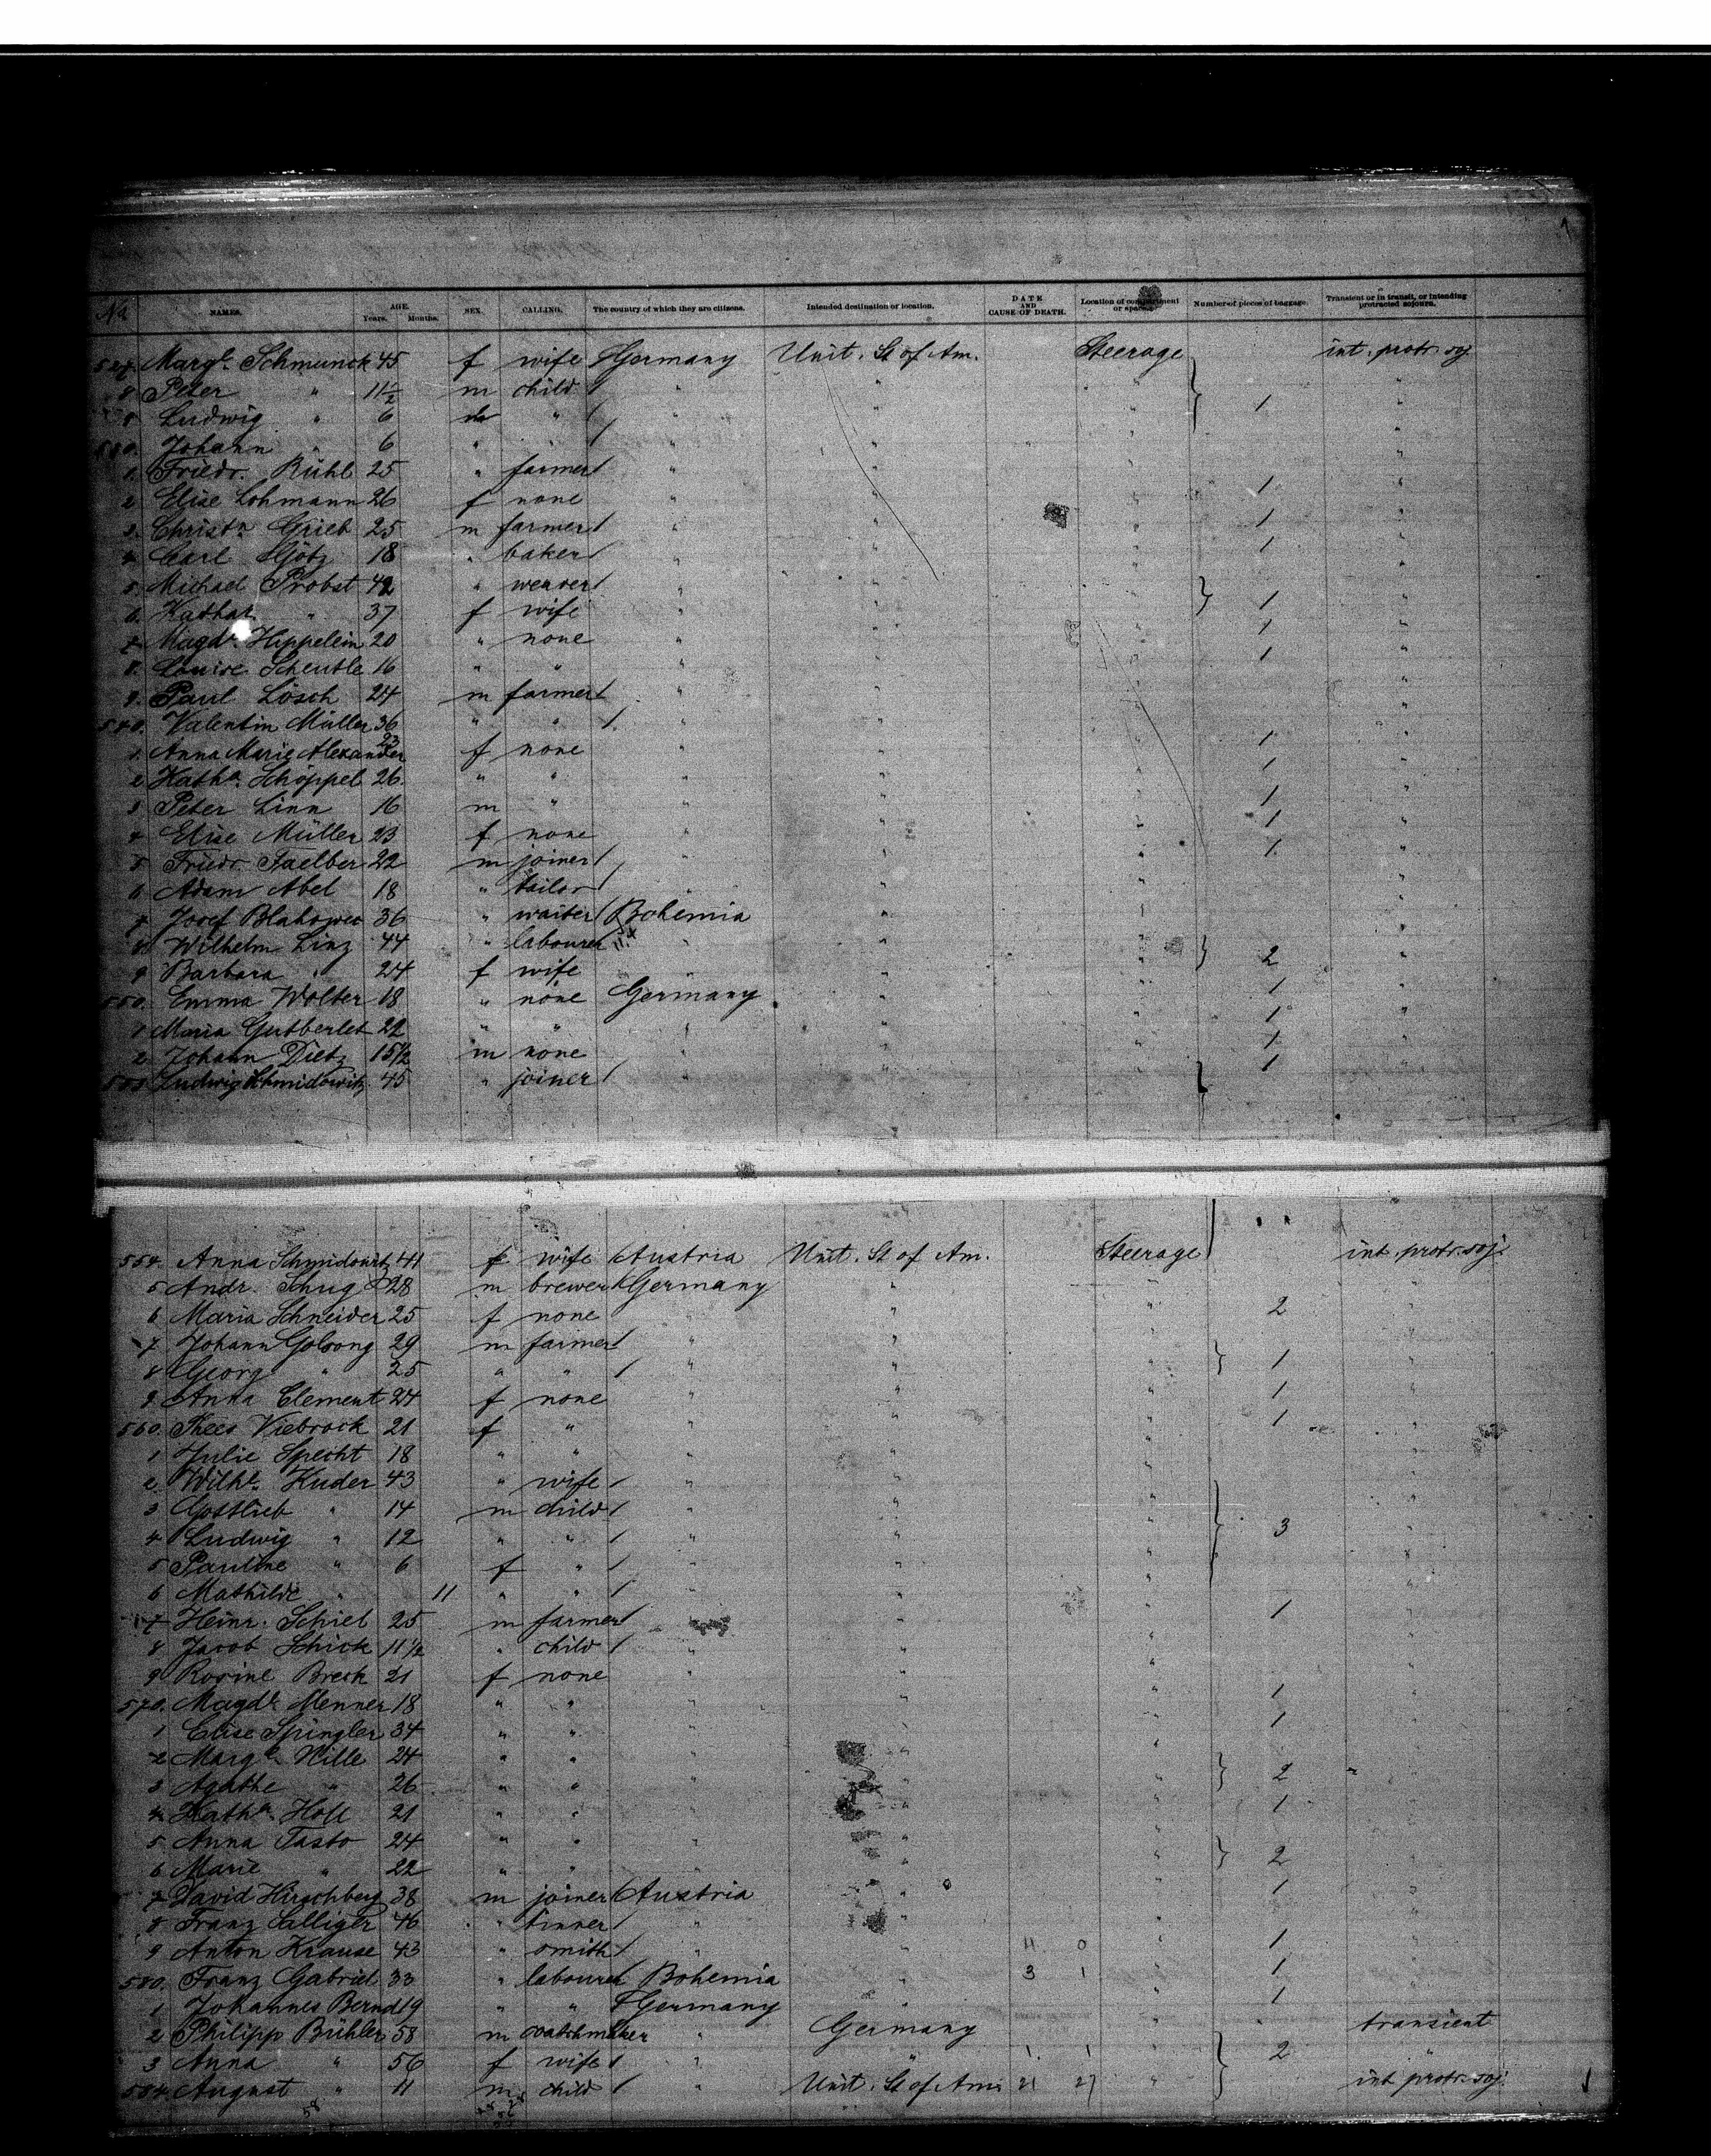 No. NAMES. AGE. Years. Months. SEX. CALLING. The country of which they are citizens. Intended destination or location. DATE AND CAUSE OF DEATH. Location of compartment or space. Number of pieces of baggage. Transient or in transit, or intending protracted sojourn.
527. Marg. Schmunck 45 f wife Germany Unit. St of Am. Steerage int. protr. soj
8 Peter " 11½ m child " " " 1 "
Ludwig " 6 " " " " "
530. Johann " 6 " " " " " "
1. Friedr. Rühl 25 " farmer " " " "
2 Elise Lohmann 26 f none " " " 1 "
3. Christn Grieb 25 m farmer " " " 1 "
4 Carl Götz 18 " baker " " " 1 "
5. Michael Probst 42 " weaver " " "
6. Kathar. " 37 f wife " " " 1 "
7 Magd. Hippelein 20 " none " " " 1 "
8. Louise Scheufle 16 " " " " " 1 "
9. Paul Lösch 24 m farmer " " " "
540. Valentin Müller 36 " " " " " "
1. Anna Marie Alexander 23 f none " " " 1 "
2 Katha. Schöppel 26 " " " " " 1 "
3 Peter Linn 16 m " " " " 1 "
4 Elise Müller 23 f none " " " 1 "
5 Friedr. Faelber 22 m joiner " " " 1 "
6 Adam Abel 18 " tailor " " " "
7 Josef 36 " waiter Bohemia " " "
8 Wilhelm Linz 44 " labourer " " "
9 Barbara " 24 f wife " " " 2 "
550. Emma Wolter 18 " none Germany " " 1 "
1 Maria Gutberlet 22 " " " " " 1 "
2 Johann Dietz 15½ m none " " " 1 "
553 Ludwig Schmidowitz 45 " joiner " " " 1 "
554. Anna Schmidowitz 41 f wife Austria Unit. St of Am. Steerage int. protr. soj.
5 Andr. Schug 28 m brewer Germany " " "
6 Maria Schneider 25 f none " " 2 "
7 Johann Golsong 29 m farmer " " " "
8 Georg " 25 " " " " " 1 "
9 Anna Clement 24 f none " " " 1 "
560. Thees Viebrock 21 f " " " " 1 "
1 Julie Specht 18 " " " " " "
2 Wilh. Kuder 43 " wife " " " "
3 Gottlieb " 14 m child " " " "
4 Ludwig " 12 " " " " " 3 "
5 Pauline " 6 f " " " " "
6 Mathilde " 11 " " " " " "
7 Heinr. Schiel 25 m farmer " " 1 "
8 Jacob Schick 11½ " child " " " "
9 Rosine Breck 21 f none " " " "
570. Magd. Menner 18 " " " " " 1 "
1 Elise Spingler 34 " " " " " 1 "
2 Marg. Wille 24 " " " " " "
3 Agathe " 26 " " " " " 2 "
4 Katha. Holl 21 " " " " " 1 "
5 Anna Tasto 24 " " " " " "
6 Marie " 22 " " " " " 2 "
7 David Hirschberg 38 m joiner Austria " " 1 "
8 Franz Salliger 46 " tinner " " " "
9 Anton Krause 43 " smith " " 11 0 " 1 "
580. Franz Gabriel 33 " labourer Bohemia " 3 1 " 1 "
1 Johannes Bernd 19 " " Germany " " 1 "
2 Philipp Bühler 58 m watchmaker " Germany " transient
3 Anna " 56 f wife " " 1 1 " 2 "
584. August " 11 m child " Unit. St of Am 21 27 " int. protr. soj.